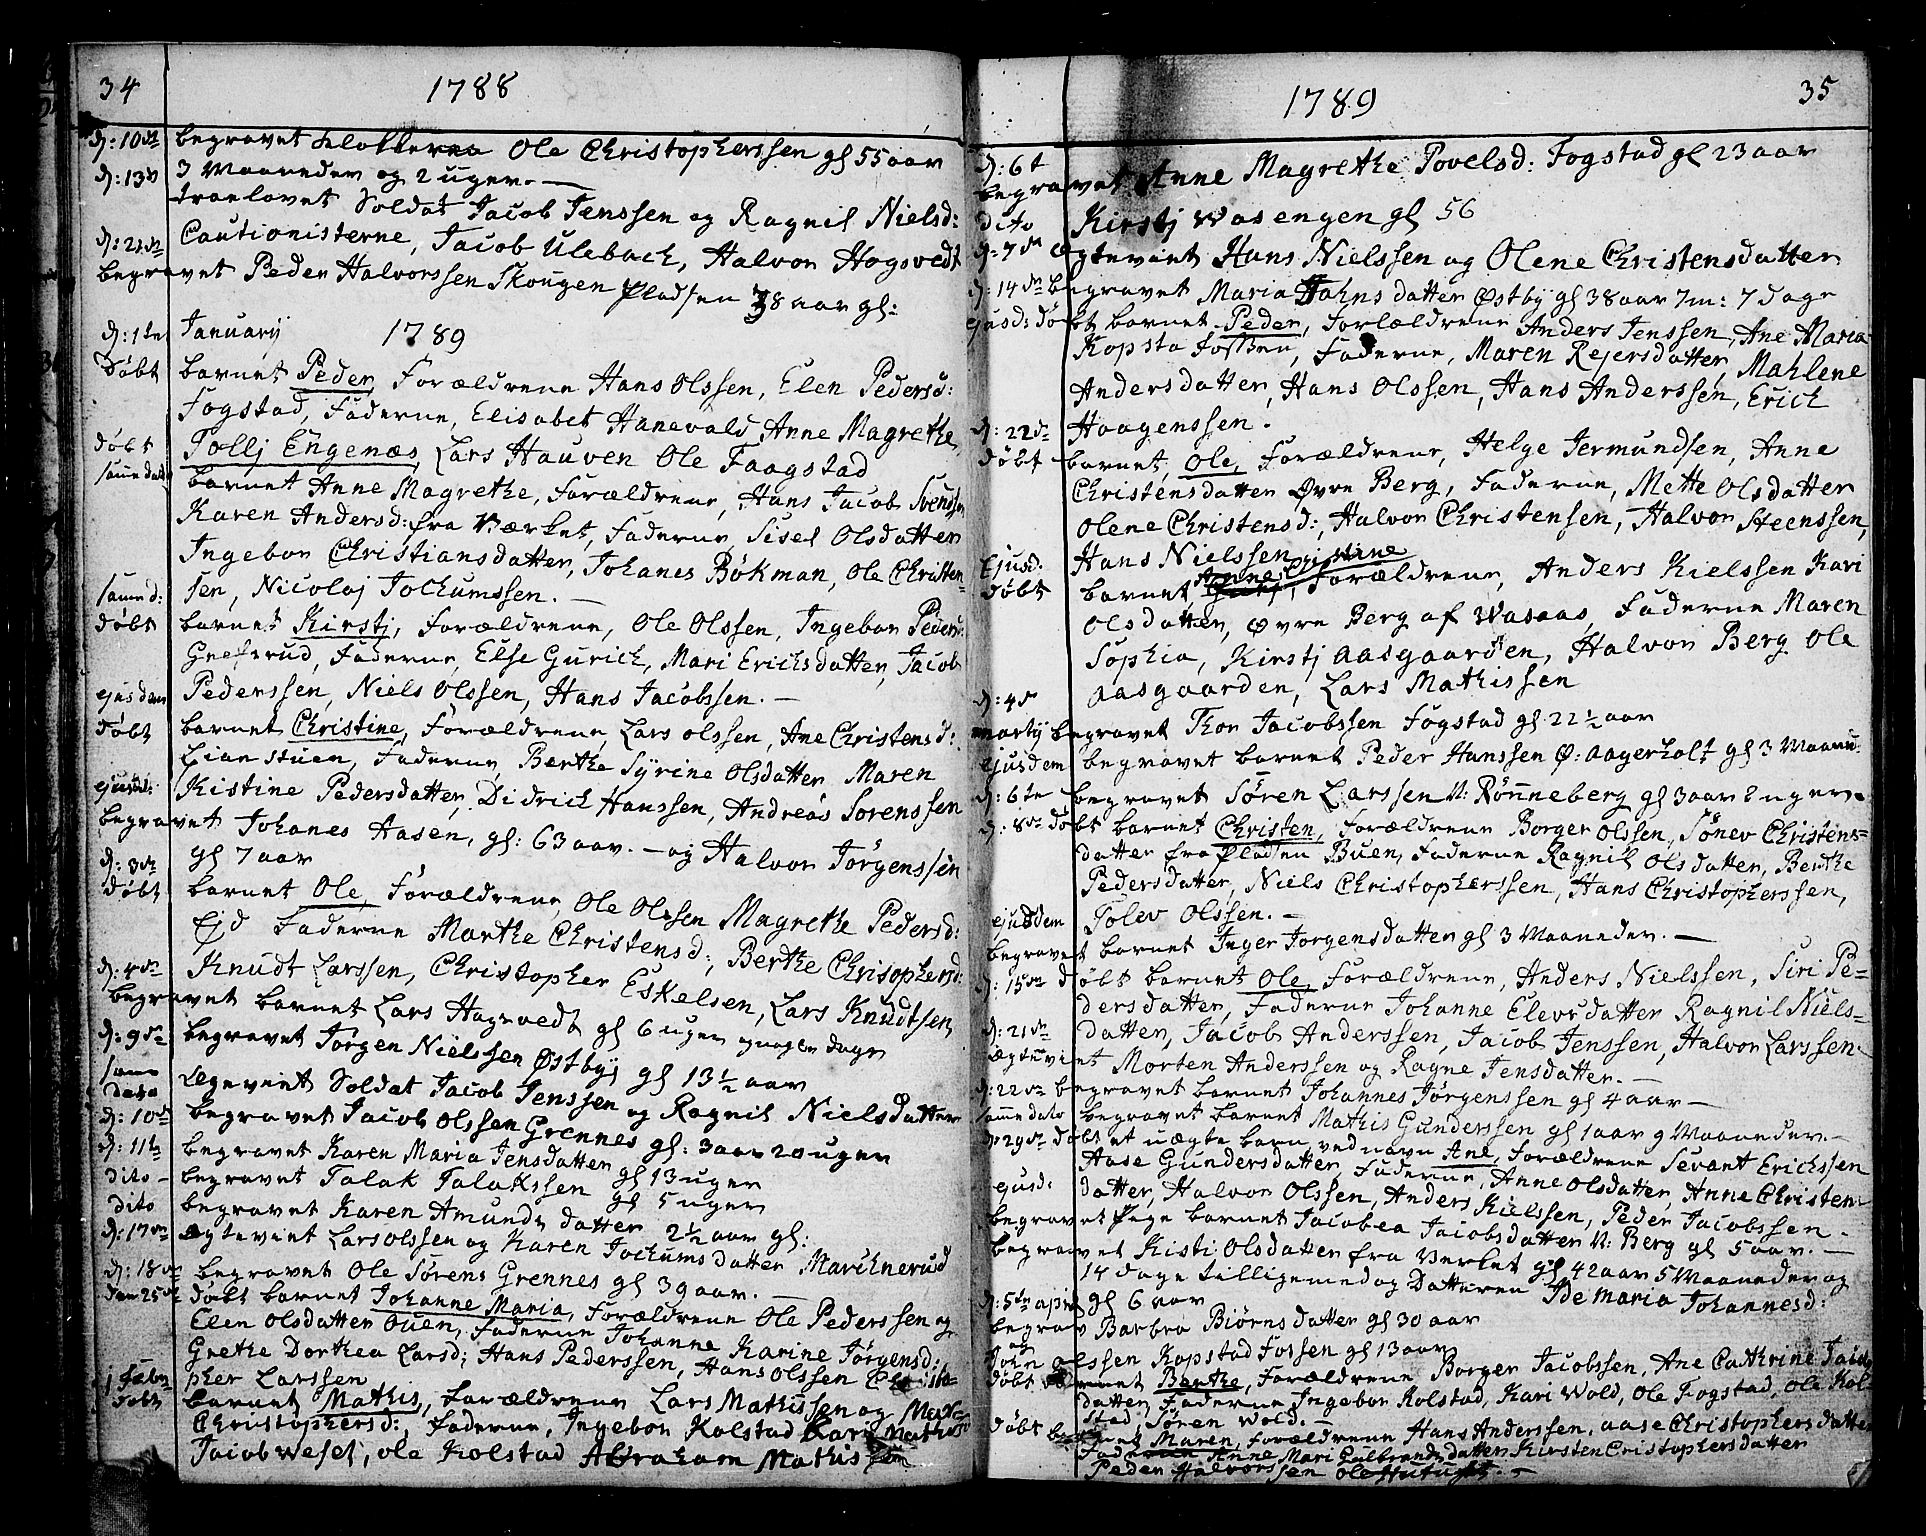 34
1788
d: 10de begravet Klokkeren Ole Christopherssen gl 55 aar
3 Maaneder og 2 uger. —
d: 13de troelovet Soldat Jacob Jenssen og Ragnil Nielsd:
Cautionisterne, Jacob Ulebach, Halvor Hogsvedt
d: 21de
begravet Peder Halvorssen Skougen Pladsen 38 aar gl:
d: 1te January 1789
Døbt barnet Peder, Forældrene Hans Olssen, Elen Pedersd:
Fogstad, Faderne, Elisabet Hanevald, Anne Magrethe
Tollj Engenæs, Lars Hauven Ole Faagstad
døbt samme dato barnet Anne Magrethe, Forældrene, Hans Jacob Svenssen
Karen Andersd: fra Værket, Faderne, Sisel Olsdatter
Ingebor Christiansdatter, Johanes Bøkman, Ole Christen=
sen, Nicolaj Jochumssen. —
samme d: døbt barnet Kirstj, Forældrene, Ole Olssen, Ingebor Pedersd:
Grefsrud, Faderne, Else Gurich, Mari Erichsdatter, Jacob
Pederssen, Niels Olssen, Hans Jacobssen. —
ejusdem døbt barnet Christine, Forældrene, Lars Olssen, Ane Christensd:
Lianstuen, Faderne, Berthe Syrine Olsdatter Maren
Kistine Pedersdatter, Didrich Hanssen, Andreas Sørenssen
ejusd: begravet Johanes Aasen, gl: 63 aar. — og Halvor Jørgenssen
gl 7 aar
d: 3de døbt barnet Ole, Forældrene, Ole Olssen Magrethe Pedersd:
Ejd Faderne Marthe Christensd:, Berthe Chrisophersd:
Knudt Larssen, Christopher Eskelsen, Lars Knudtsen
d: 4de begravet barnet Lars Hagsvedt gl 6 uger og nogle dage
d: 9de begravet Jørgen Nielssen Østby gl 13 ½ aar
samme dato Ægeviet Soldat Jacob Jenssen og Ragnil Nielsdatter
d: 10de begravet Jacob Olssen Grennes gl: 3 aar 20 uger
d: 11te begravet Karen Maria Jensdatter gl 13 uger
dito — begravet Talak Talakssen gl 5 uger
dito begravet Karen Amunds datter 2½ aar gl:
d: 17de Ægteviet Lars Olssen og Karen Jochumsdatter Marchnerud
d: 18de begravet Ole Sørens Grennes gl 39 aar. —
den 25de døbt barnet Johanne Maria, Forældrene Ole Pederssen og
Elen Olsdatter Ouen, Faderne Johanne Karine Jørgensd:
Grethe Dorthea Larsd:, Hans Pederssen, Hans Olssen Christo=
pher Larssen
1 Febr døbt barnet Mathis, Forældrene Lars Mathissen og
Christophersd:, Faderne, Ingebor Kolstad
Jacob Wesel, Ole Kolstad Abraham Mathissen
1789
35
d: 6t begravet Anne Magrethe Povelsd: Fogstad gl 23 aar
dito Kirstj Wasengen gl 56
d: 7de Ægteviet Hans Nielssen og Olene Christensdatter
d: 14de begravet Maria Johnsdatter Østby gl 38 aar 7 m: 7 dage
ejusd: døbt barnet Peder, Forældrene Anders Jenssen, Ane Maria
Kopsta Fossen, Faderne, Maren Rejersdatter, Mahlene
Andersdatter, Hans Olssen, Hans Anderssen, Erich
Haagenssen.
d: 22de døbt barnet, Ole, Forældrene, Helge Jermundsen, Anne
Christensdatter Øvre Berg, Faderne, Mette Olsdatter
Olene Christensd:, Halvor Christensen, Halvor Steenssen,
Hans Nielssen
Ejusd. døbt barnet, Anne Cristine, Forældrene, Anders Kielssen Kari
Olsdatter, Øvre Berg af Wasaas, Faderne Maren
Sophia, Kirstj Aasgaarden, Halvor Berg Ole
Aasgaarden, Lars Mathissen
d: 4de marty begravet Thor Jacobssen Fogstad gl 22 ½ aar
ejusdem begravet barnet Peder Hanssen Ø: Aagerholt gl 3 Maaned:
d: 6te begravet Søren Larssen N: Rønneberg gl 3 aar 2 uger.
d: 8de døbt barnet Christen, Forældrene Borger Olssen, Sønev Christens=
datter fra Pladsen Buen, Faderne Ragnil Olsdatter, Berthe
Pedersdatter, Niels Christopherssen, Hans Christopherssen,
Tolev Olssen. —
ejusdem begravet barnet Inger Jorgensdatter gl 3 Maaneder. —
d: 15de døbt barnet Ole, Forældrene, Anders Nielssen, Siri Pe=
dersdatter, Faderne Johanne Elevsdatter Ragnil Niels=
datter, Jacob Anderssen, Jacob Jenssen, Halvor Larssen.
d: 21de ægteviet Morten Anderssen og Ragne Jensdatter. —
d: 22de begravet barnet Johannes Jørgenssen gl 4 aar —
samme dato begravet barnet Mathis Gunderssen gl 1 aar 9 Maaneder. —
d: 29de døbt et uægte barn ved navn Ane, Forældrene Sevant Erichssen
Aase Gundersdatter, Faderne, Anne Olsdatter, Anne Christen=
datter, Halvor Olssen, Anders Kielssen, Peder Jacobssen.
ejusd: begravet Pige barnet Jacobea Jacobsdatter N: Berg gl 5 aar. —
begravet Kisti Olsdatter fra Verket gl 42 aar 5 Maaneder og
14 dage tilligemed og Datteren Ide Maria Johannesd:
gl 6 aar
d: 5te april begrav Barbra Biørnsdatter gl 30 aar
og John Olssen Kopstad Fossen gl 13 aar
døbt barnet Berthe, Forældrene Borger Jacobssen, Ane Cathrine
datter, Faderne Ingebor Kolstad, Kari Wold, Ole Fogstad, Ole Kol=
stad, Søren Wold. —
døbt barnet Maren, Forældrene Hans Anderssen, Aase Christophersdatter
Faderne Anne Mari Gulbrandsdatter Kirsten Cristophersdatter
Peder Halvorssen Ole